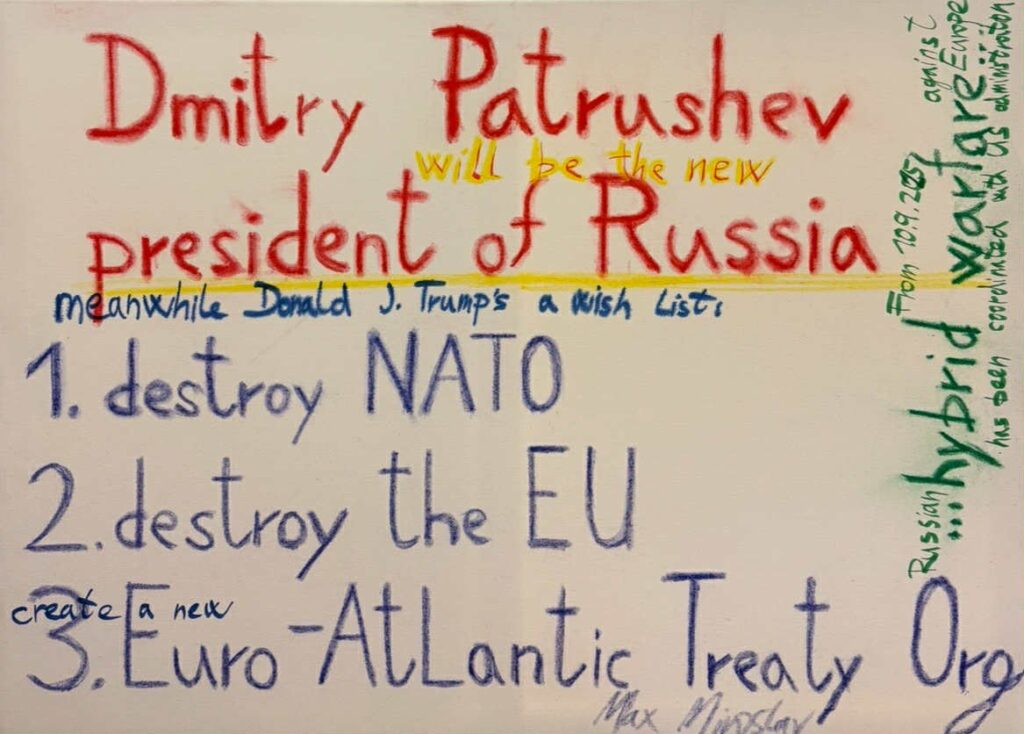 Dmitry Patrushev
will be the new
president of Russia
meanwhile Donald J. Trump's a wish List:
1. destroy NATO
2. destroy the EU
create a new
3. Euro-AtLantic Treaty Org
Max Miroslav
From 10.9.2025 against Europe
Russian ...hybrid warfare...
has been coordinated with US administration